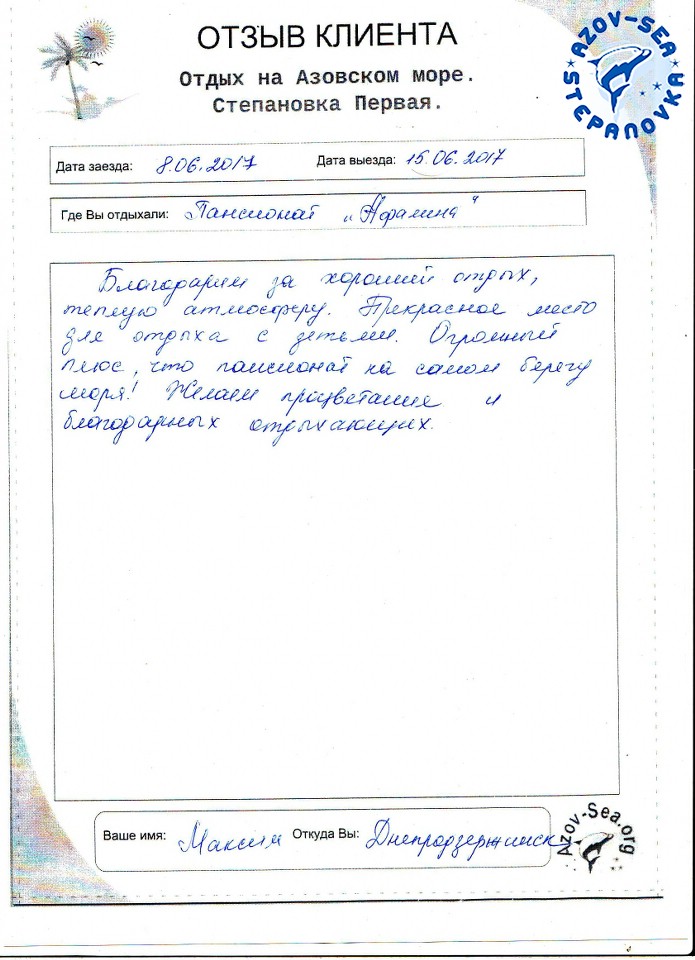 ОТЗЫВ КЛИЕНТА
AZOV-SEA
STEPANOVKA
Отдых на Азовском море.
Степановка Первая.
Дата заезда: 8.06.2017 Дата выезда: 15.06.2017
Где Вы отдыхали: Пансионат "Афалина"
Благодарим за хороший отдых,
теплую атмосферу. Прекрасное место
для отдыха с детьми. Огромный
плюс, что пансионат на самом берегу
моря! Желаем процветания и
благодарных отдыхающих.
Ваше имя: Максим Откуда Вы: Днепродзержинск
Azov-Sea.org